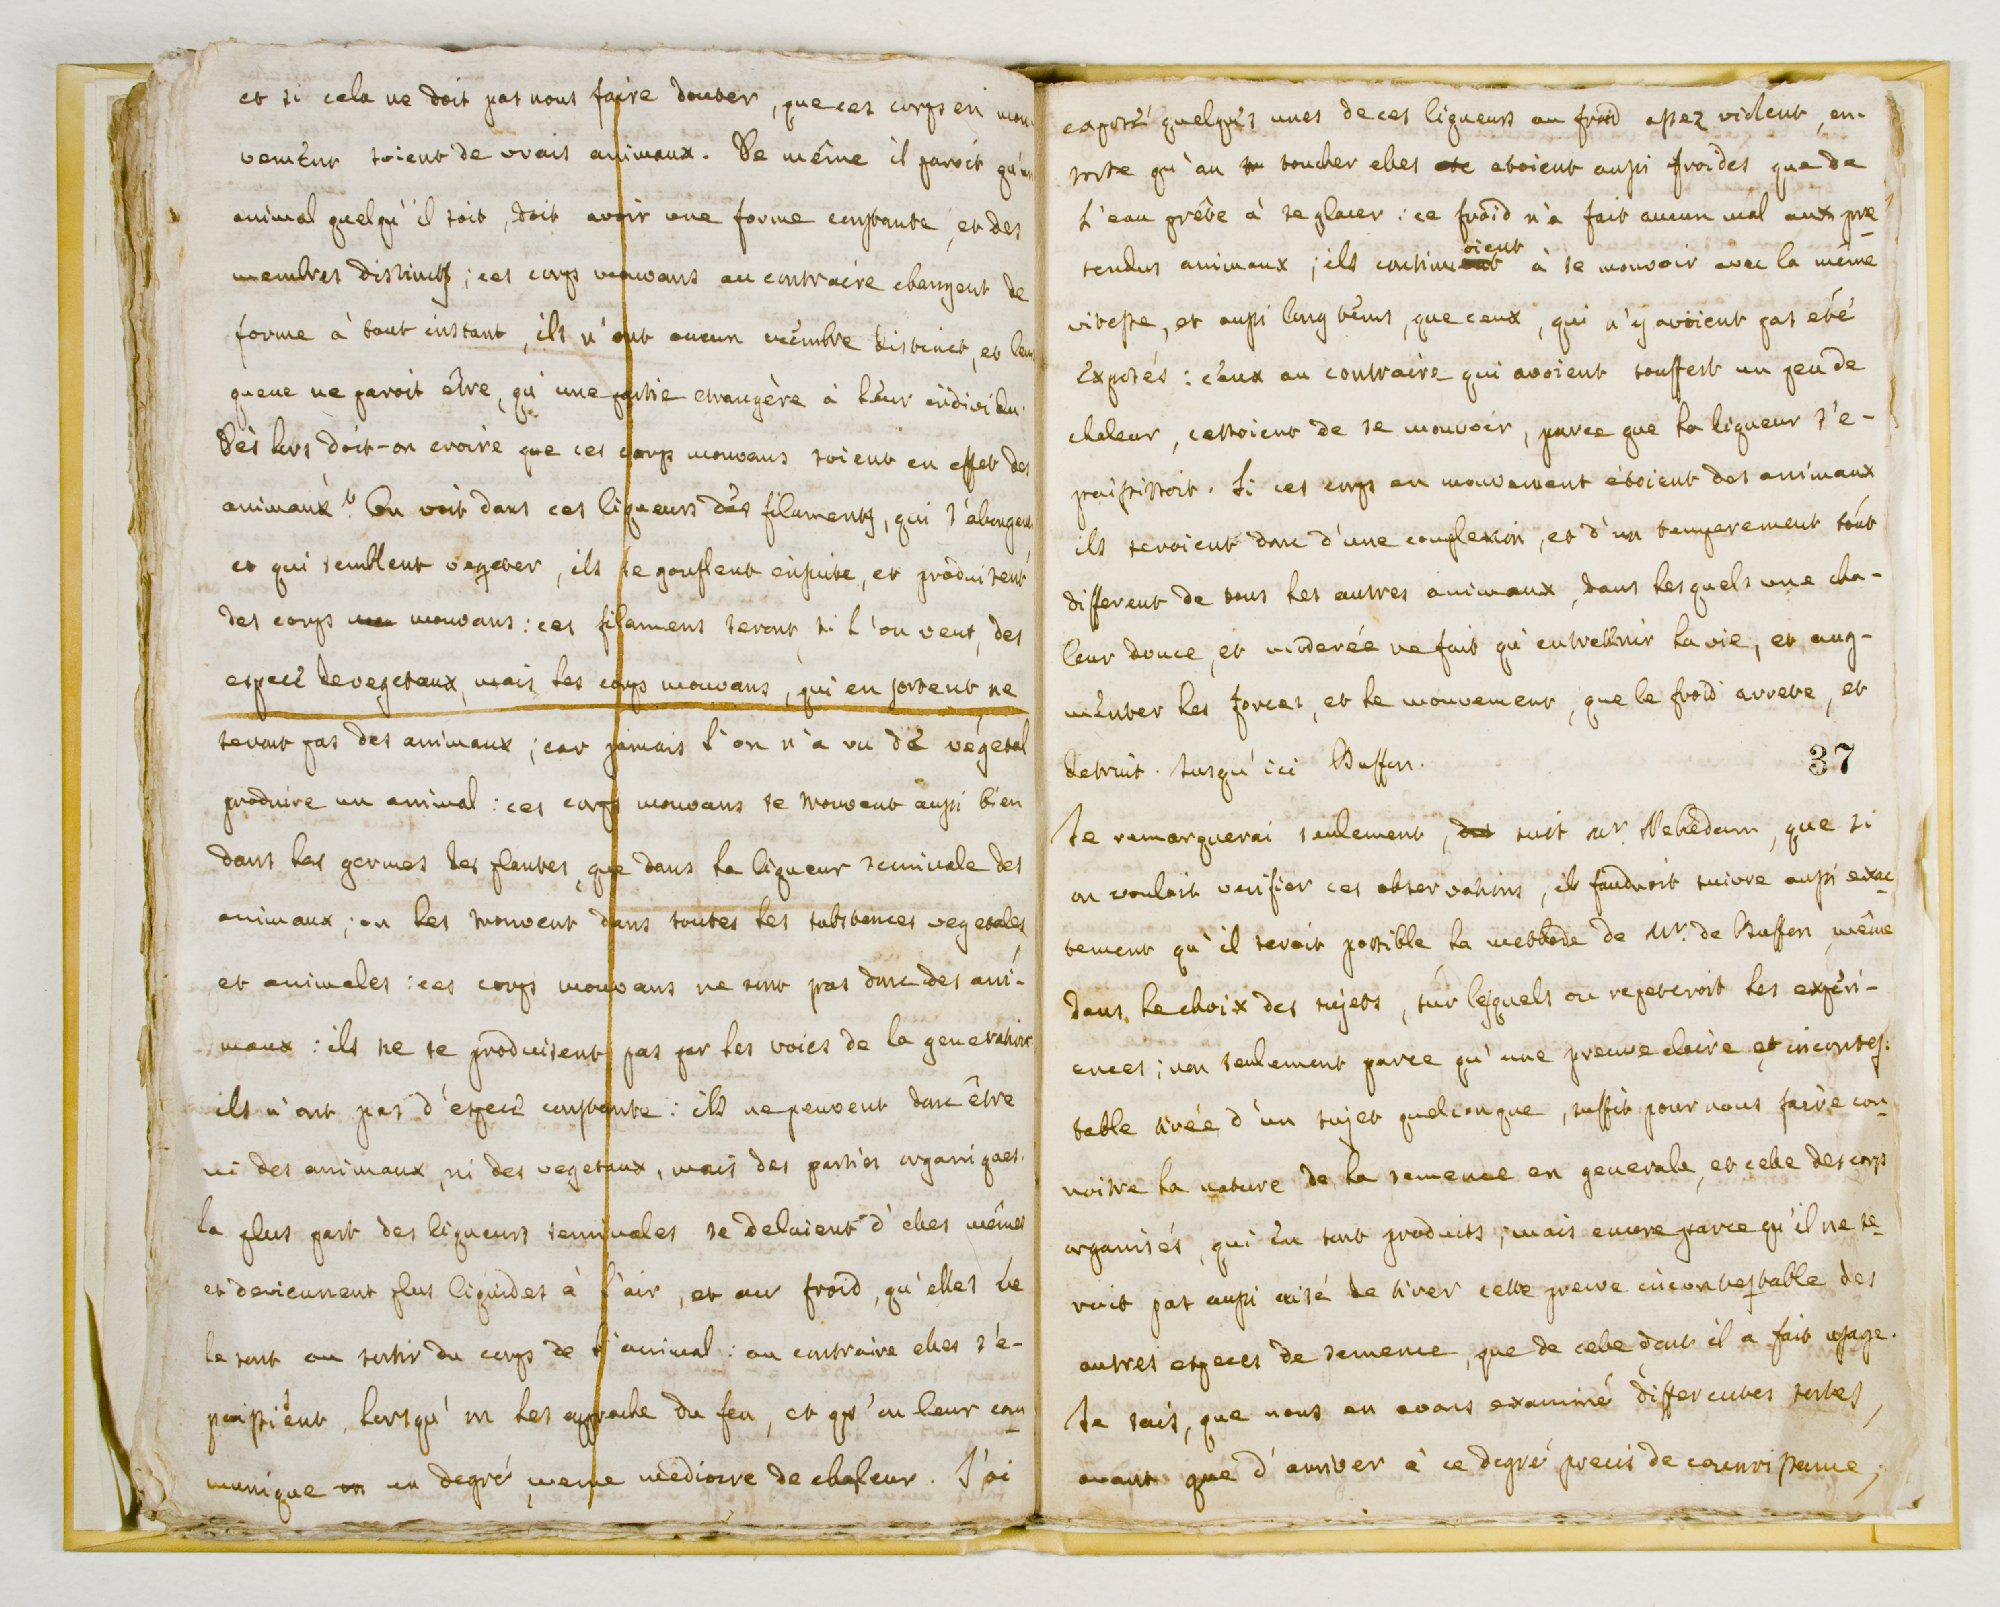 et si cela ne doit pas nous faire douter, que ces corps en mou-
vement soient de vrais animaux. De même il paroit qu'un
animal quelqu'il soit, doit avoir une forme constante, et des
membres distincts; ces corps mouvans au contraire changent de
forme à tout instant, ils n'ont aucun membre distinct, et leur
queue ne paroit être, qu'une partie etrangère à leur individu.
Dès lors doit-on croire que ces corps mouvans soient en effet des
animaux? On voit dans ces liqueurs des filaments, qui s'alongent
et qui semblent vegeter, ils se gonflent ensuite, et produisent
des corps mouvans: ces filamens seront, si l'on veut, des
espece de vegetaux, mais les corps mouvans, qui en sortent ne
seront pas des animaux; car jamais l'on n'a vu de végetal
produire un animal: ces corps mouvans se trouvent aussi bien
dans les germes des plantes, que dans la liqueur seminale des
animaux; on les trouvent dans toutes les substances vegetales,
et animales: ces corps mouvans ne sont pas donc des ani-
maux: ils ne se produisent pas par les voies de la generation
ils n'ont pas d'espece constante: ils ne peuvent donc être
ni des animaux, ni des vegetaux, mais des parties organiques.
la plus part des liqueurs seminales se delaient d'elles mêmes
et deviennent plus liquides à l'air, et au froid, qu'elles ne
le sont au sortir du corps de l'animal: au contraire elles s'e-
paissient, lorsqu'on les approche du feu, et qu'on leur com
munique un degré, meme mediocre de chaleur. J'ai
exposé quelques unes de ces liqueurs au froid assez violent, en-
sorte qu'au toucher elles etoient aussi froides que de
L'eau prête à se glacer: ce froid n'a fait aucun mal aux pre
tendus animaux; ils continuoient à se mouvoir avec la même
vitesse, et aussi long tems, que ceux, qui n'y avoient pas eté
exposés: ceux au contraire qui avoient souffert un peu de
chaleur, cessoient de se mouvoir, parce que la liqueur s'e-
paississoit. Si ces corps en mouvement étoient des animaux
ils seroient donc d'une complexion, et d'un temperement tout
different de tous les autres animaux, dans lesquels une cha-
leur douce, et moderée ne fait qu'entretenir la vie, et aug-
menter les forces, et le mouvement, que le froid arrete, et
detruit. Jusqu'ici Buffon.
37
Je remarquerai seulement, suit Mr. Nehedam, que si
on vouloit verifier ces observations, il faudroit suivre aussi exac
tement qu'il seroit possible la methode de Mr. de Buffon, même
dans le choix des sujets, sur lesquels on repeteroit les experi-
ences; non seulement parce qu'une preuve claire et incontes:
table tirée d'un sujet quelconque, suffit pour nous faire con
noitre la nature de la semence en generale, et celle des corps
organisés, qui en sont produits; mais encore parce qu'il ne se
roit pas aussi aisé de tirer cette preuve incontestable des
autres especes de semence, que de celle dont il a fait usage.
Je sais, que nous en avons examiné differentes sortes,
avant que d'arriver à ce degré precis de connoissance;